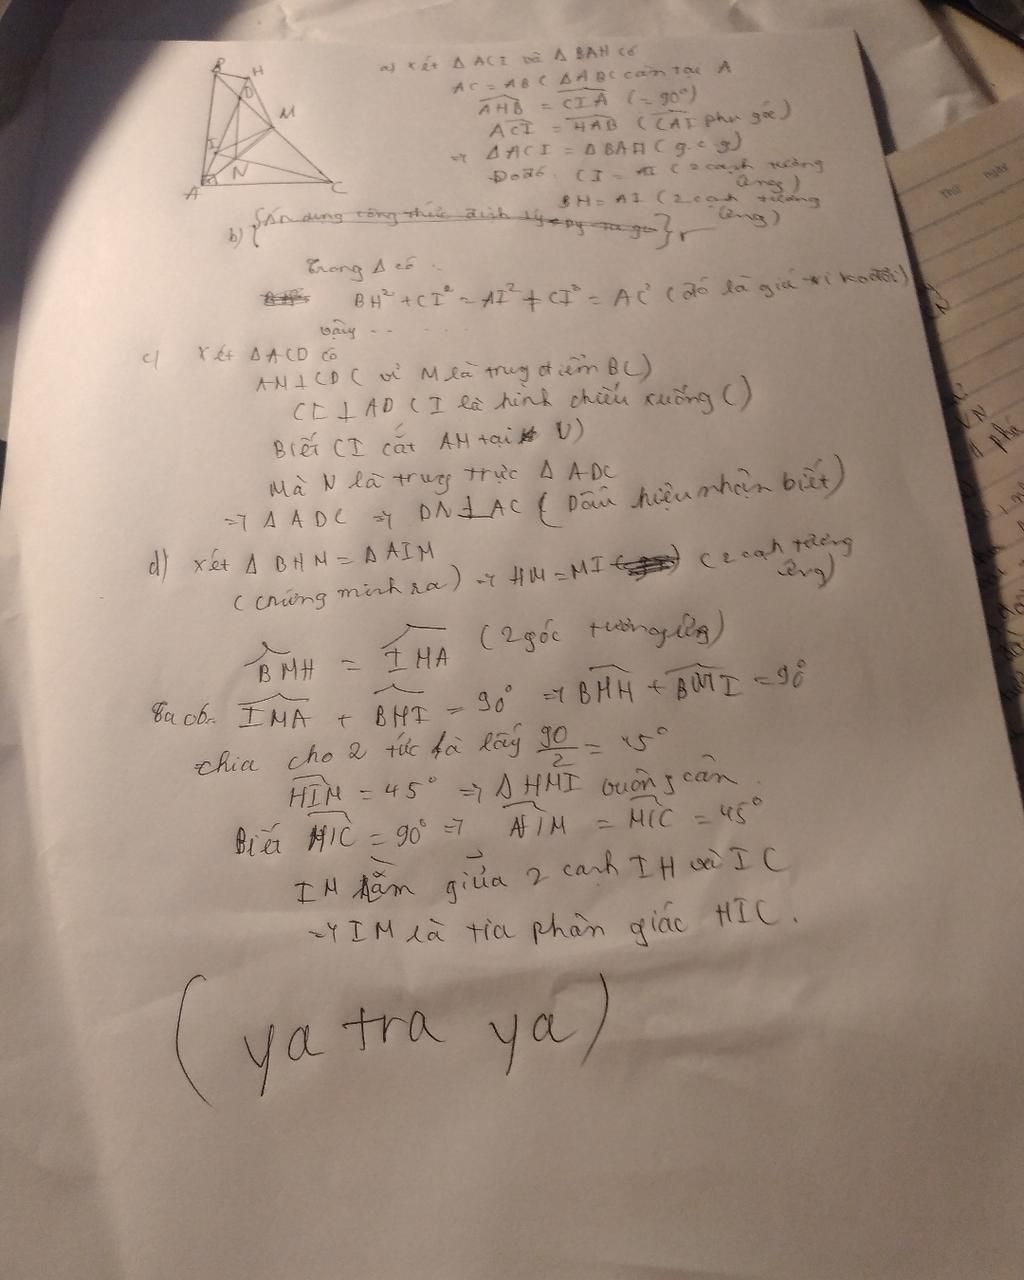 B
H
D
M
I
N
A
C
a) xét Δ ACI và Δ BAH có
AC = AB ( Δ ABC cân tại A
AHB = CIA (= 90°)
ACI = HAB ( CAI phụ góc)
=> Δ ACI = Δ BAH ( g.c.g)
Do đó: CI = AI ( 2 cạnh tương ứng)
BH = AI ( 2 cạnh tương ứng)
b)
Trong Δ có ..
BH² + CI² = AI² + CI² = AC² ( đó là giá trị ko đổi)
vậy .. ....
c) xét Δ ACD có
AM ⊥ CD ( vì M là trung điểm BC)
CI ⊥ AD ( I là hình chiếu xuống C)
Biết CI cắt AM tại N)
Mà N là trung trực Δ ADC
=> Δ ADC => DN ⊥ AC ( Dấu hiệu nhận biết)
d) xét Δ BHM = Δ AIM
(chứng minh ra) => HM = MI ( 2 cạnh tương ứng)
BMH = IMA ( 2 góc tương ứng)
Ta có: IMA + BMI = 90° => BMH + BMI = 90°
chia cho 2 tức là lấy 90/2 = 45°
HIM = 45° => Δ HMI vuông cân
Biết HIC = 90° => HIM = MIC = 45°
IM nằm giữa 2 cạnh IH và IC
=> IM là tia phân giác HIC.
(ya tra ya)
Thứ Ngày